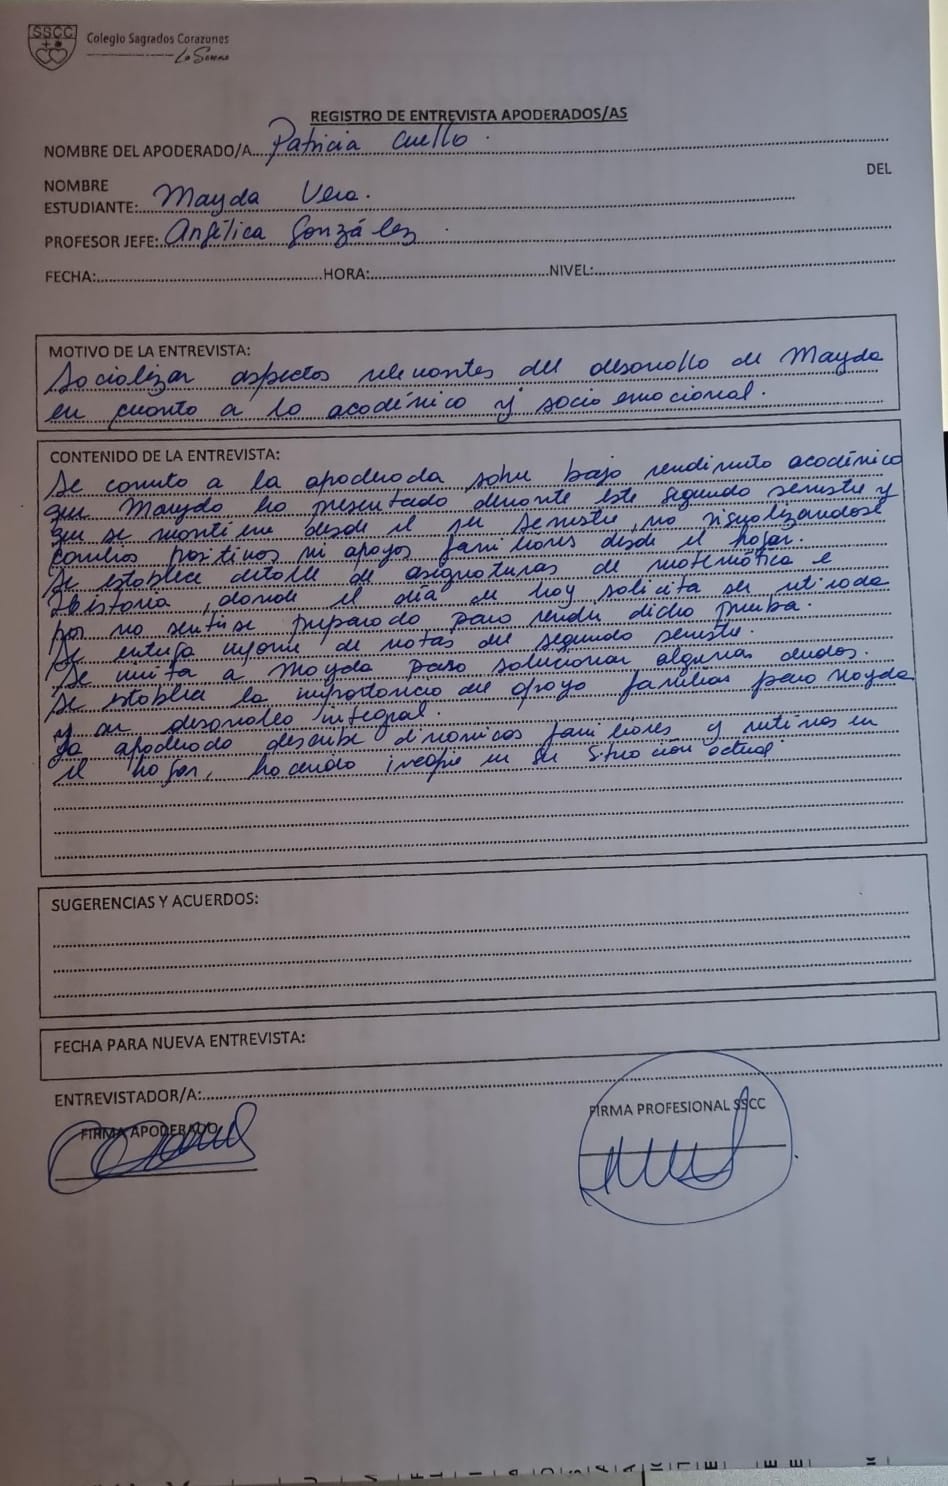 SSCC
Colegio Sagrados Corazones
La Serena
REGISTRO DE ENTREVISTA APODERADOS/AS
NOMBRE DEL APODERADO/A...Patricia Cuello.
NOMBRE DEL
ESTUDIANTE:...Mayda Vera.
PROFESOR JEFE:..Angélica González.
FECHA:...HORA:...NIVEL:...
MOTIVO DE LA ENTREVISTA:
Socializar aspectos relevantes del desarrollo de Mayda
en cuanto a lo académico y socio emocional.
CONTENIDO DE LA ENTREVISTA:
Se comenta a la apoderada sobre bajo rendimiento académico
que Mayda ha presentado durante este segundo semestre y
que se mantiene desde el semestre, no visualizandose
cambios positivos ni apoyos familiares desde el hogar.
Se establece detalle de asignaturas de matemática e
Historia, donde el día de hoy solicita ser retirada
por no sentirse preparada para rendir dicha prueba.
Se entrega informe de notas del segundo semestre.
Se invita a Mayda para solucionar algunas dudas.
Se establece la importancia del apoyo familiar para Mayda
y su desarrollo integral.
La apoderada describe dinámicas familiares y rutinas en
el hogar, haciendo incapie en su situación actual
SUGERENCIAS Y ACUERDOS:
FECHA PARA NUEVA ENTREVISTA:
ENTREVISTADOR/A:
FIRMA APODERADO
FIRMA PROFESIONAL SSCC